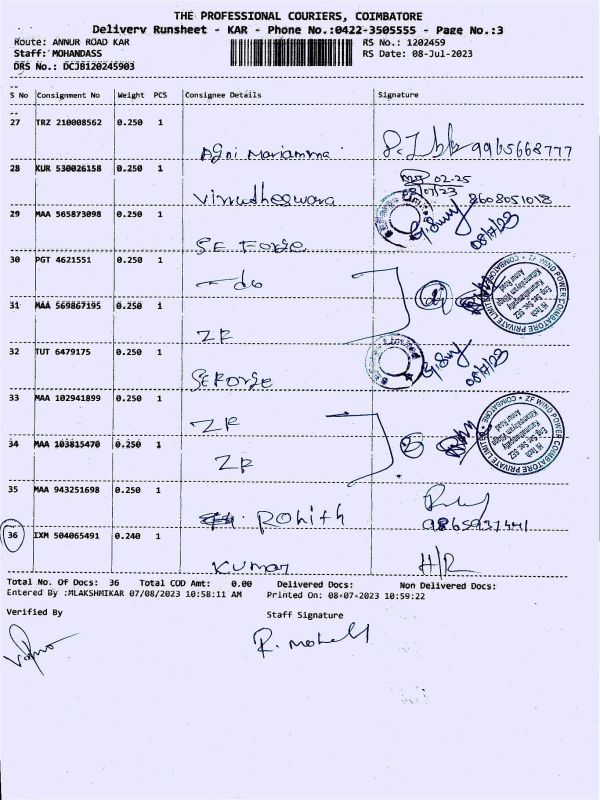 THE PROFESSIONAL COURIERS, COIMBATORE
Delivery Runsheet - KAR - Phone No.:0422-3505555 - Page No.:3
Route: ANNUR ROAD KAR
RS No.: 1202459
Staff: MOHANDASS
RS Date: 08-Jul-2023
DRS No.: DCJB120245903
S No Consignment No Weight PCS Consignee Details Signature
27 TRZ 210008562 0.250 1
Agni Mariamma 9965668777
28 KUR 530026158 0.250 1
02-25
08/07/23
Vinudheswara 8608051058
29 MAA 565873098 0.250 1
08/7/23
SE Forge
30 PGT 4621551 0.250 1
do
31 MAA 569867195 0.250 1
ZF WIND POWER COIMBATORE PRIVATE LIMITED
Hi Tech
Eng. Sec. SEZ
Annur Road
ZR
32 TUT 6479175 0.250 1
08/7/23
SE Forge
33 MAA 102941899 0.250 1
ZR
34 MAA 103815470 0.250 1
ZF WIND POWER COIMBATORE PRIVATE LIMITED
Hi Tech
Eng. Sec. SEZ
Annur Road
ZR
35 MAA 943251698 0.250 1
Rohith 9865937441
36 IXM 504065491 0.240 1
Kumar H/R
Total No. Of Docs: 36 Total COD Amt: 0.00 Delivered Docs: Non Delivered Docs:
Entered By :MLAKSHMIKAR 07/08/2023 10:58:11 AM Printed On: 08-07-2023 10:59:22
Verified By Staff Signature